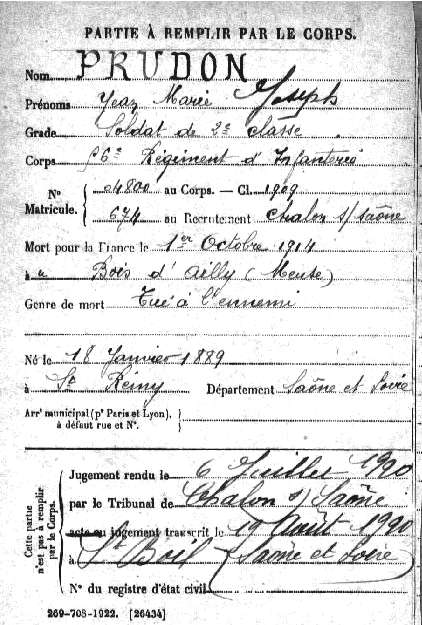 PARTIE À REMPLIR PAR LE CORPS.
Nom PRUDON
Prénoms Jean Marie Joseph
Grade Soldat de 2e classe
Corps 56e Régiment d'Infanterie
No Matricule. 04800 au Corps. — Cl. 1909
674 au Recrutement Chalon s/ Saône
Mort pour la France le 1er Octobre 1914
à au Bois d'Ailly (Meuse)
Genre de mort Tué à l'ennemi
Né le 18 Janvier 1889
à St Rémy Département Saône et Loire
Arrt municipal (pr Paris et Lyon),
à défaut rue et No.
Cette partie n'est pas à remplir par le Corps.
Jugement rendu le 6 Juillet 1920
par le Tribunal de Chalon s/ Saône
acte ou jugement transcrit le 19 Août 1920
à St Boil (Saône et Loire)
No du registre d'état civil
269-708-1922. [26434]